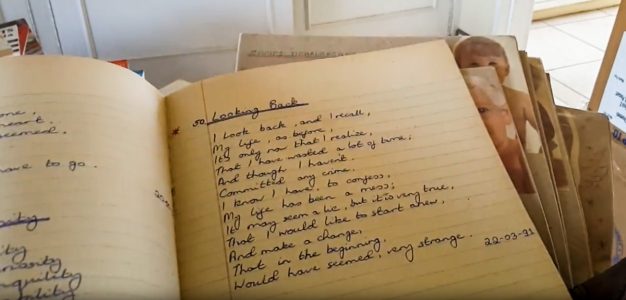 one,
seemed.
have to go.
* 50. Looking Back
I look back, and I recall,
My life, as before,
It's only now that I realize,
That I have wasted a lot of time;
And though I haven't
Committed any crime,
I know I have, to confess,
My life has been a mess;
It may seem a lie, but it is very true,
That I would like to start anew,
And make a change,
That in the beginning,
Would have seemed, very strange.
22-03-91